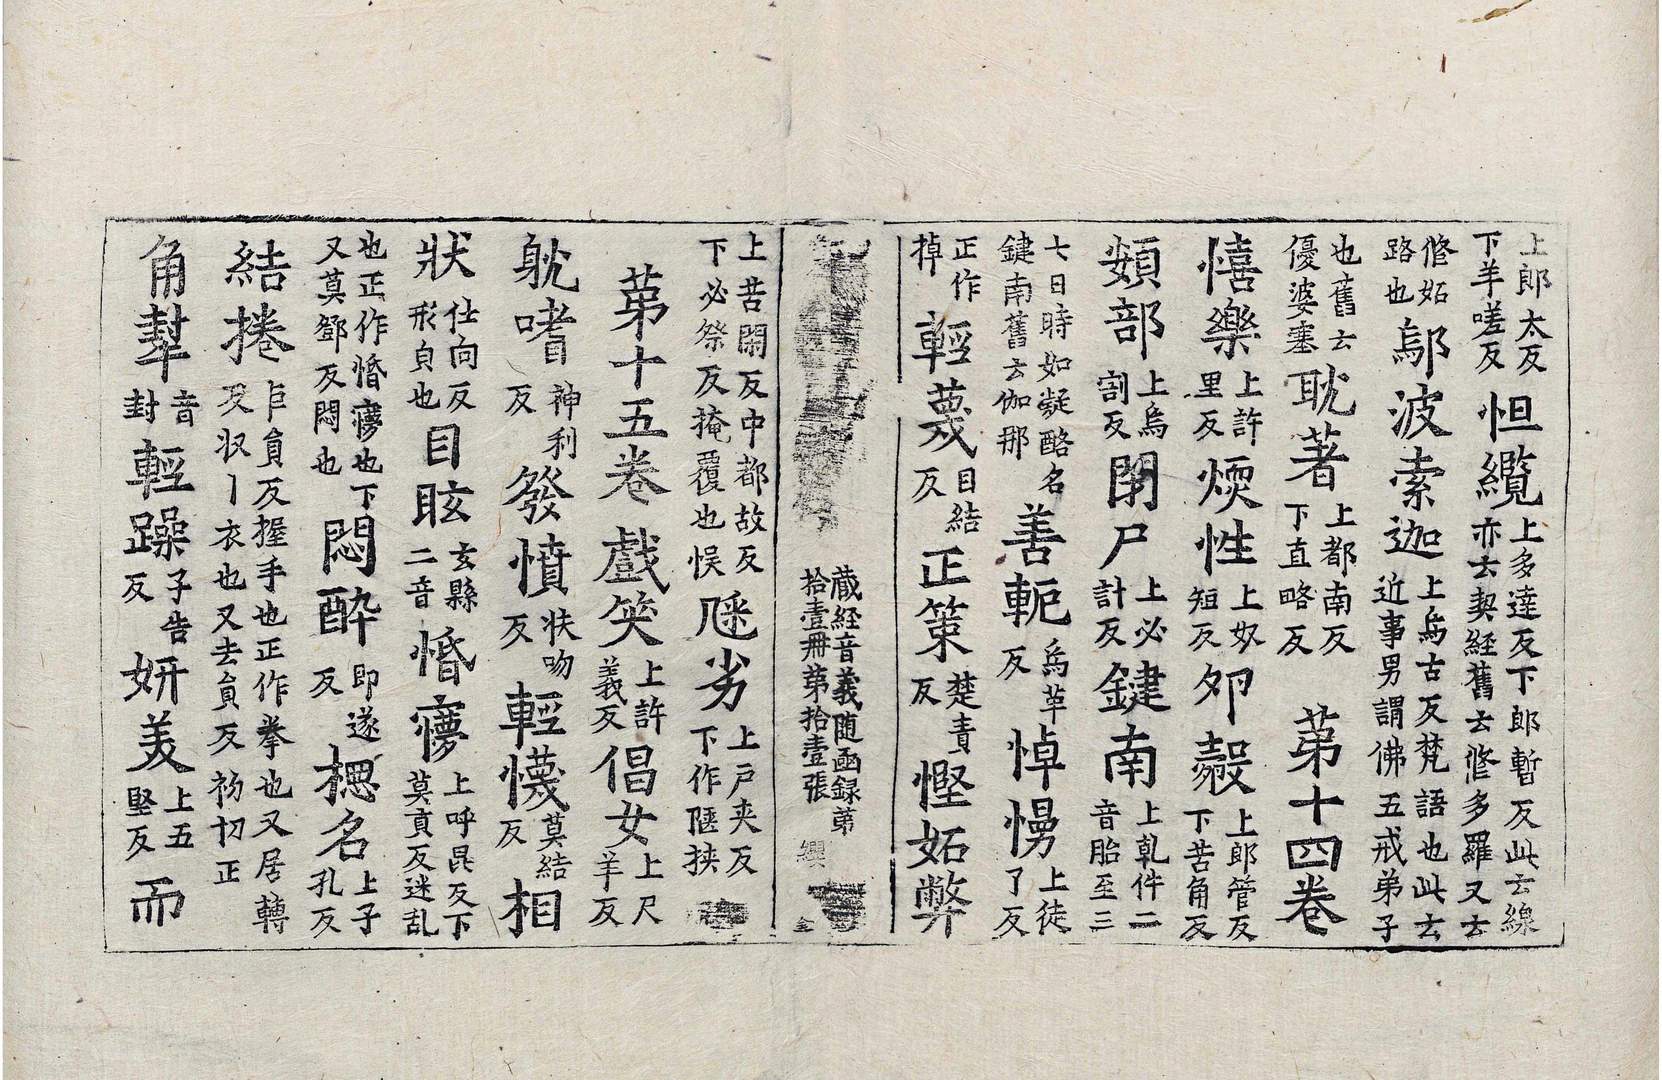 上郎太反下羊嗟反怛纜上多達反下郎暫反此云線亦云契經舊云修多羅又云
修妬路也鄔波索迦上烏古反梵語也此云近事男謂佛五戒弟子
也舊云優婆塞耽著上都南反下直略反第十四卷
憘樂上許里反煗性上奴短反卵㲉上郎管反下苦角反
頞部上烏割反閉尸上必計反鍵南上乹件二音胎至三
七日時如凝酪名鍵南舊云伽那善軶烏革反悼慢上徒了反
正作掉輕蔑目結反正策楚責反慳妬弊
藏經音義随函録第拾壹冊第拾壹張
上苦閑反中都故反下必祭反掩覆也悮陿劣上戸夹反下作陿挟
第十五卷戲笑上許義反倡女上尺羊反
躭嗜神利反發憤扶吻反輕懱莫結反相
狀仕向反形皃也目眩玄縣二音惛㝱上呼昆反下莫亙反迷乱
也正作惛㝱也下又莫鄧反悶也悶酔即遂反揌名上子孔反
結捲巨負反握手也正作拳也又居轉反収丨衣也又去負反礿切正
角㓝音封輕躁子告反妍美上五堅反而